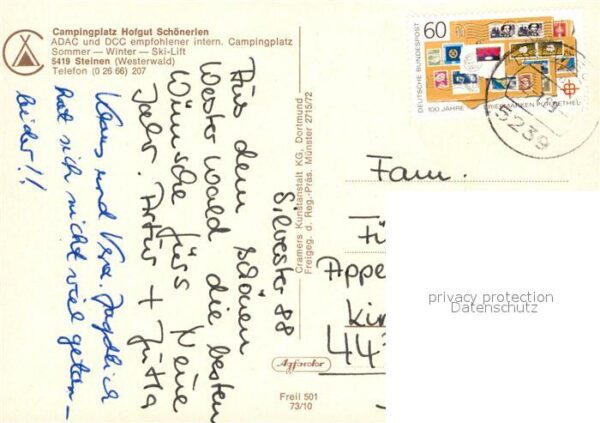 Campingplatz Hofgut Schönerlen
ADAC und DCC empfohlener intern. Campingplatz
Sommer — Winter — Ski-Lift
5419 Steinen (Westerwald)
Telefon (0 26 66) 207
Silvester 88
Aus dem schönen
Westerwald die besten
Wünsche fürs Neue
Jahr. Artur + Jutta
Klaus und Vera. Jagdlich
hat sich nicht viel getan –
leider!!
Cramers Kunstanstalt KG, Dortmund
Freigeg. d. Reg.-Präs. Münster 2715/72
60
DEUTSCHE BUNDESPOST
100 JAHRE BRIEFMARKEN FÜR BETHEL
5239
Fam.
Appe
kir
44
privacy protection
Datenschutz
Agfacolor
Freil 501
73/10